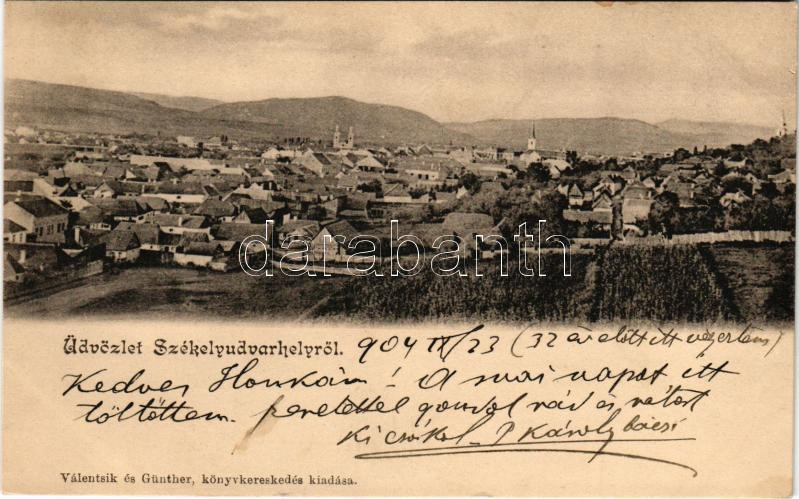 darabanth
Üdvözlet Székelyudvarhelyről. 904 IX/23 (32 év előtt itt végeztem)
Kedves Honkám! A mai napot itt
töltöttem. szeretettel gondol rád és
kicsókol Károly bácsi
Válentsik és Günther, könyvkereskedés kiadása.